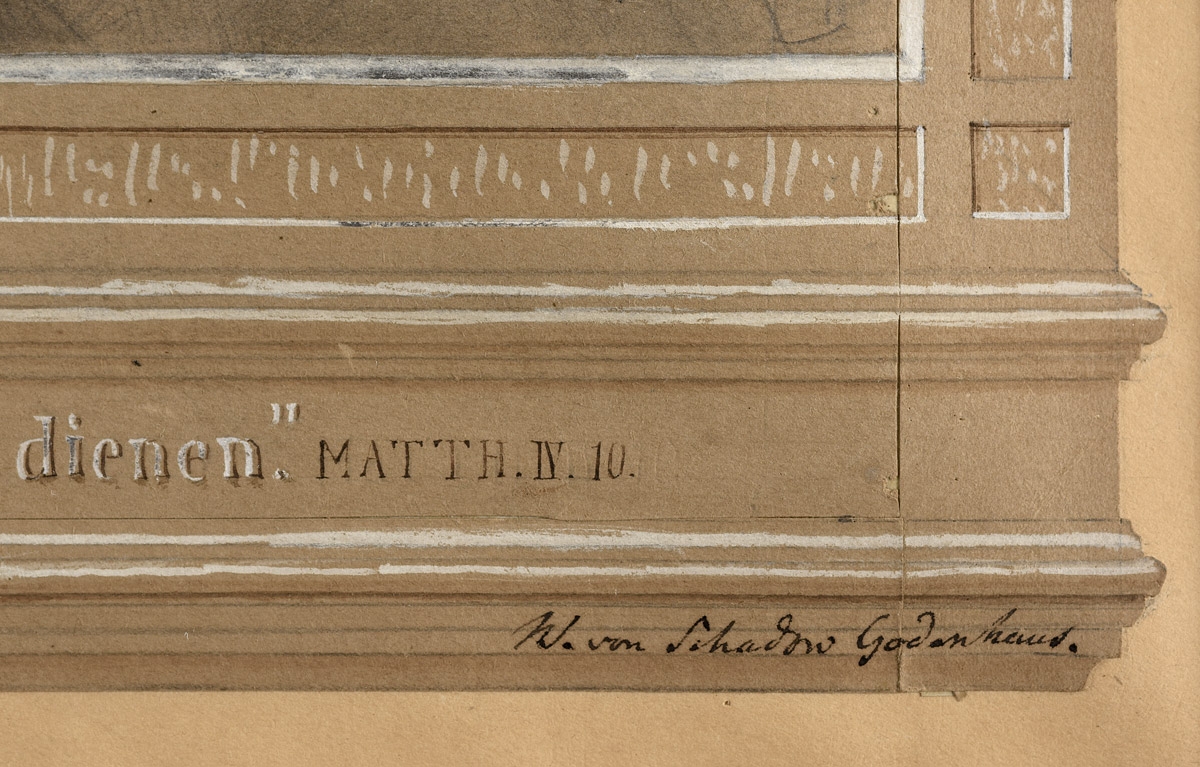 dienen." MATTH. IV. 10.
W. von Schadow Godenhaus.